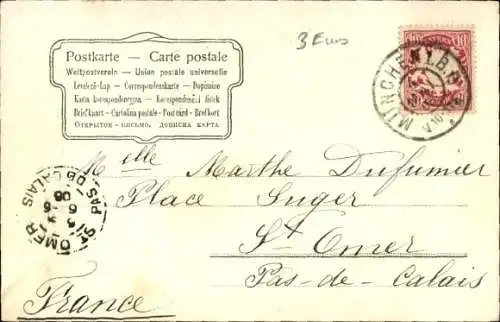 3 Euros
Postkarte — Carte postale
Weltpostverein — Union postale universelle
Levelezö-Lap — Correspondenzkarte — Dopisnice
Karta korespondencyjna — Korespondenční lístek
Briefkaart — Cartolina postale — Postcard — Brefkort
ОТКРЫТОЕ - ПИСЬМО. ДОПИСНА КАРТА
BAYERN
10
MÜNCHEN
Melle Marthe Dufumier
Place Suger
St Omer
Pas-de-Calais
France
ST OMER
PAS DE CALAIS